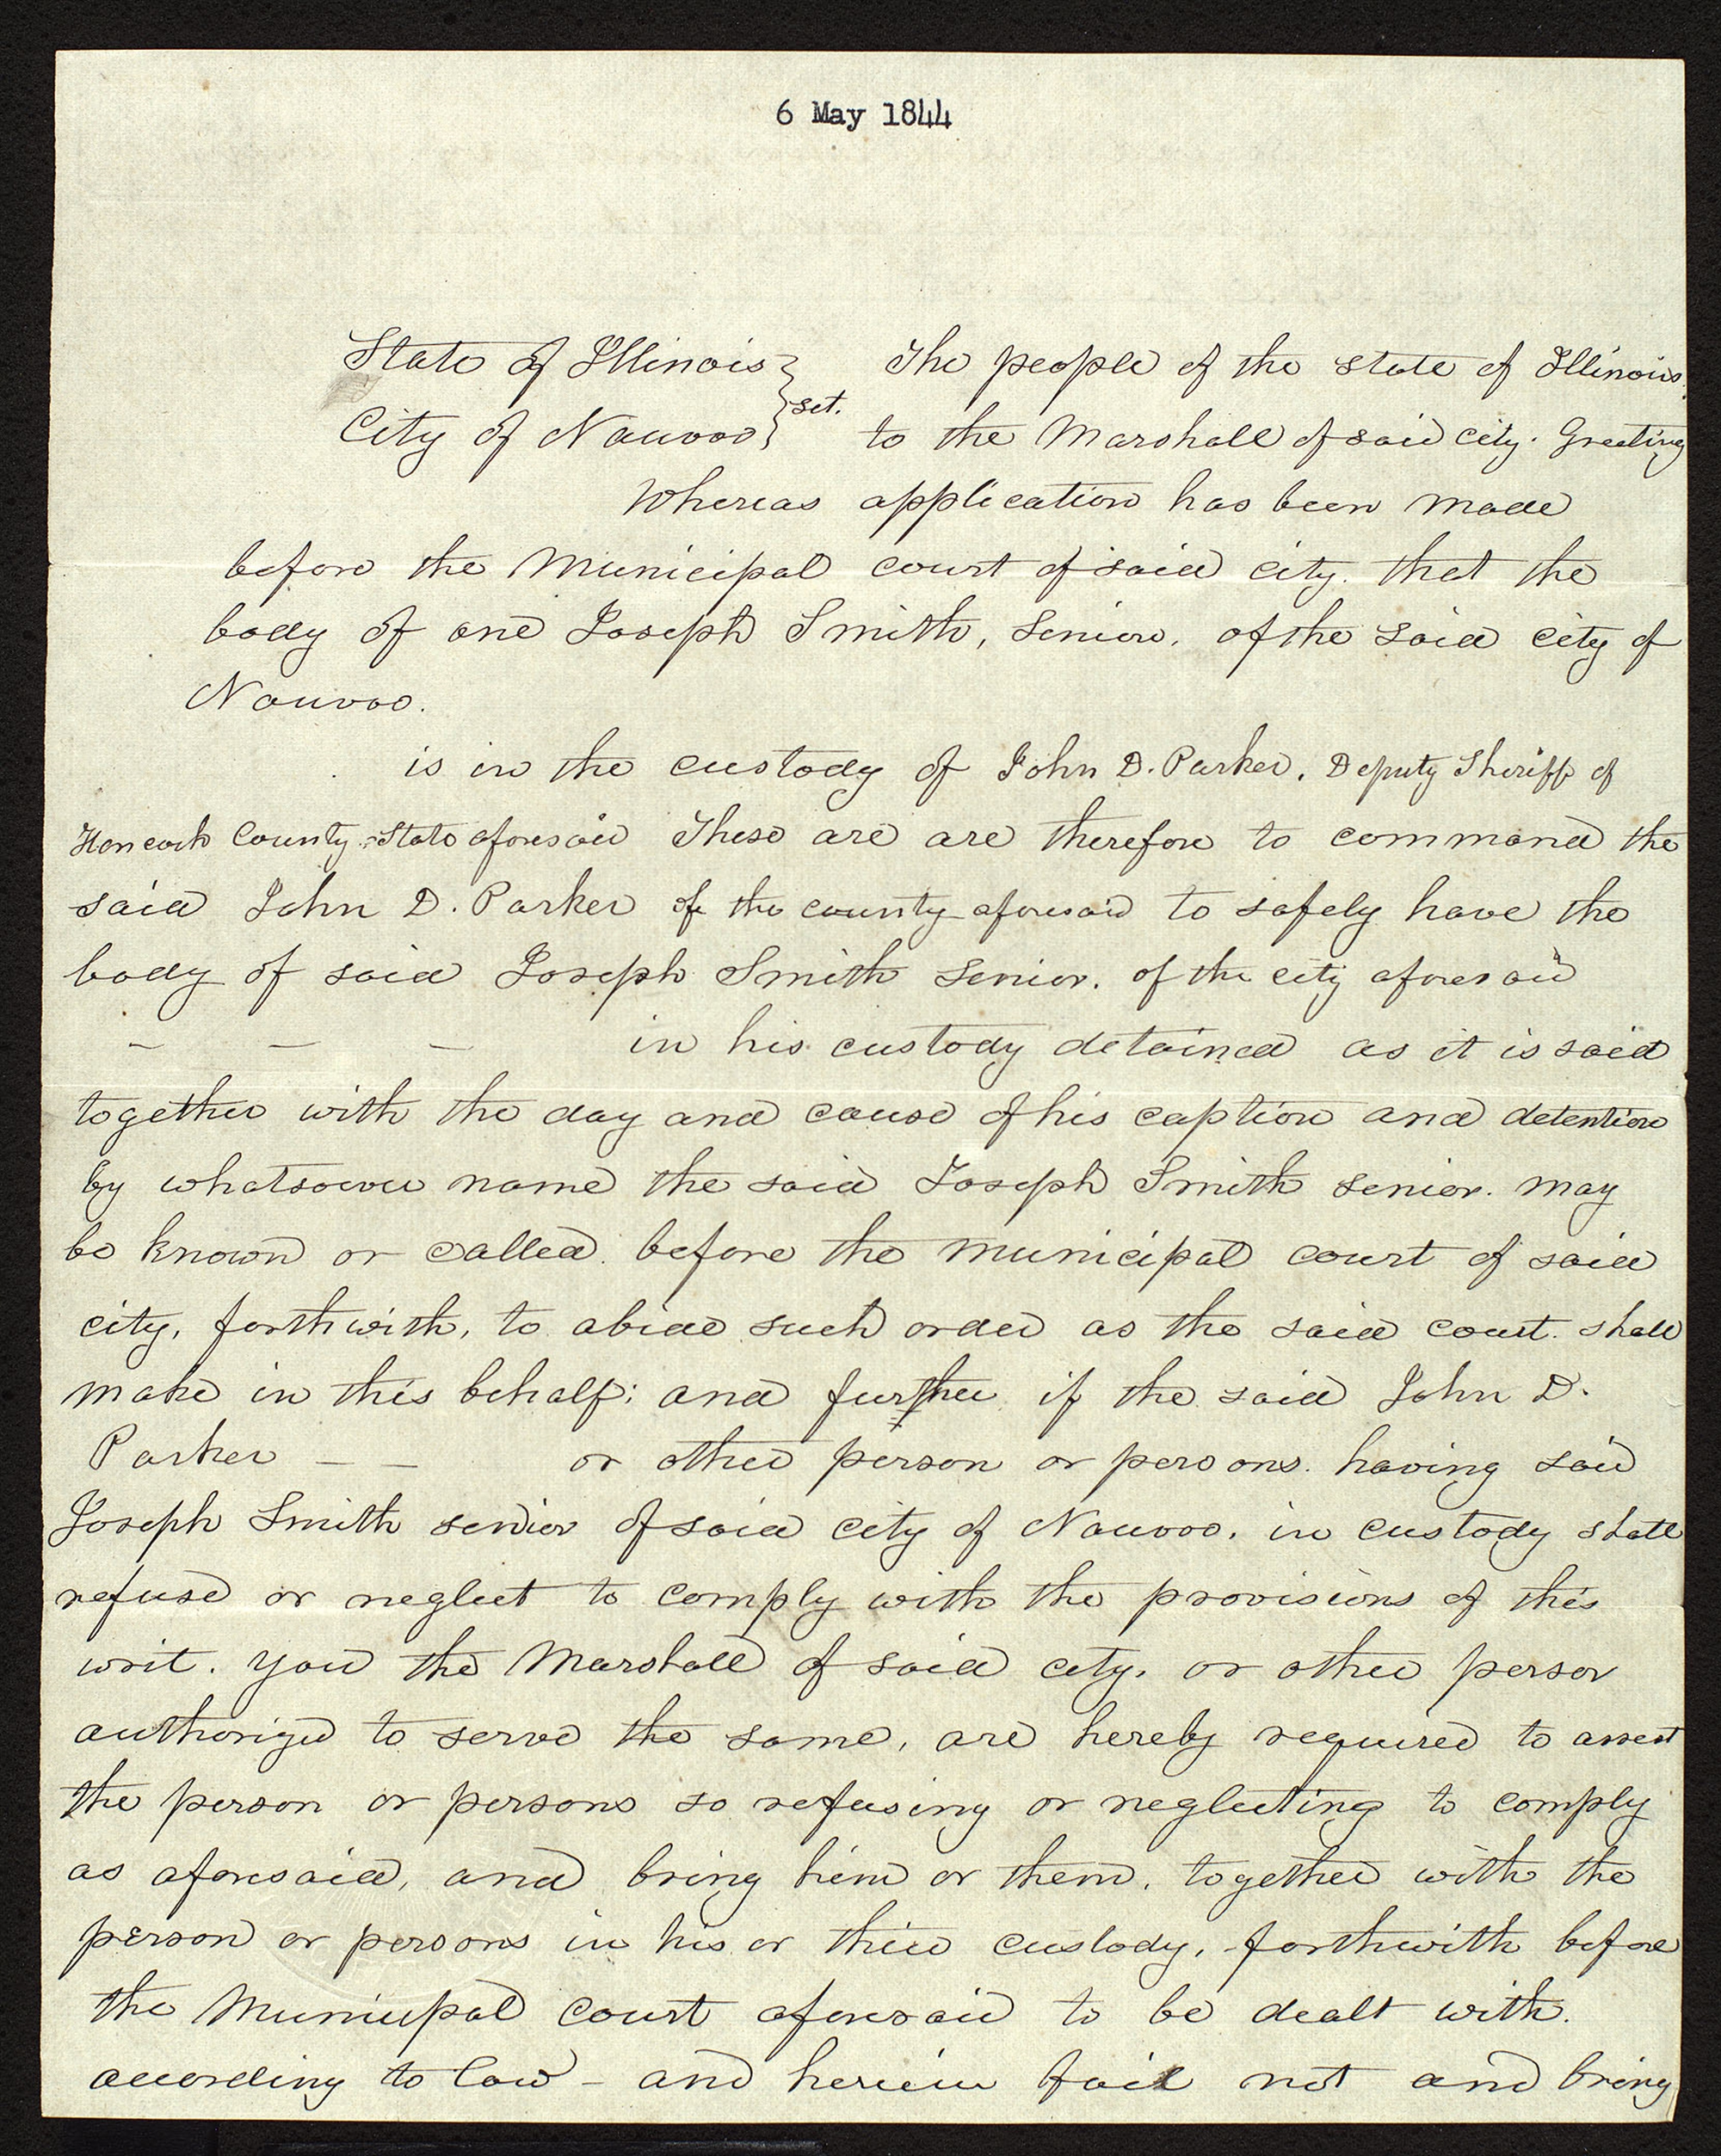 6 May 1844
State of Illinois } The people of the State of Illinois.
} sct.
City of Nauvoo } to the Marshall of said city. Greeting
Whereas application has been made
before the Municipal court of said city. that the
body of one Joseph Smith, Senior, of the said city of
Nauvoo.
is in the custody of John D. Parker, Deputy Sheriff of
Hancock County State aforesaid These are are therefore to command the
said John D. Parker of the county aforesaid to safely have the
body of said Joseph Smith Senior. of the city aforesaid
— — — in his custody detained as it is said
together with the day and cause of his caption and detention
by whatsoever name the said Joseph Smith Senior. may
be known or called. before the municipal court of said
city, forthwith, to abide such order as the said court. shall
make in this behalf; and further if the said John D.
Parker — — or other person or persons. having said
Joseph Smith senior of said city of Nauvoo. in custody shall
refuse or neglect to comply with the provisions of this
writ. you the Marshall of said city, or other person
authorized to serve the same, are hereby required to arrest
the person or persons so refusing or neglecting to comply
as aforesaid, and bring him or them, together with the
person or persons in his or thier custody, forthwith before
the Municipal court aforesaid to be dealt with.
according to law – and herein fail not and bring